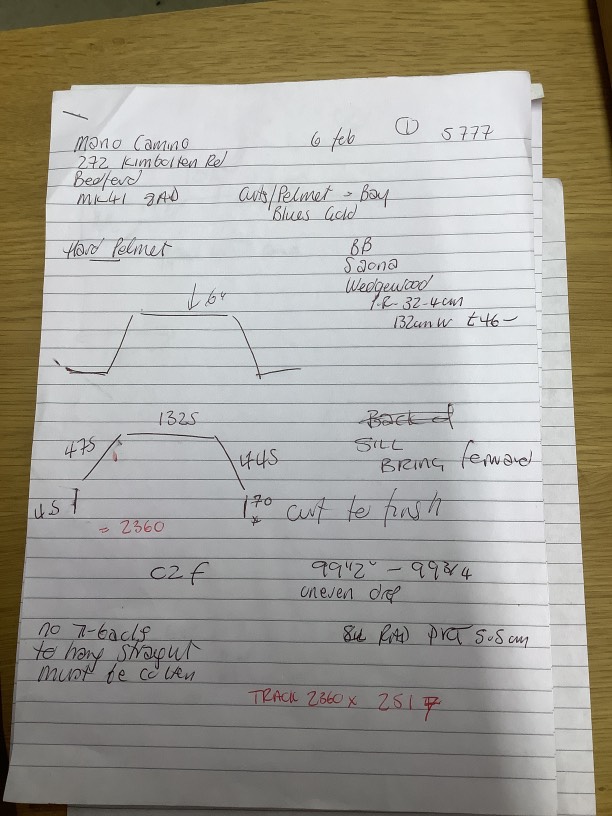 6 feb ① 5777
Mano Camino
272 Kimbolten Rd
Bedford
MK41 8AD
Curts/Pelmet = Bay
Blues Gold
Hard Pelmet
BB
Saona
Wedgewood
P.R- 32-4cm
132cm W £46-
↓ 6"
1325
475
445
45
70
= 2360
Back of
SILL
BRING forward
Curt to finish
C2F
99"2" - 99 3/4
uneven drop
no T-backs
to hang straight
must be
Sill RAD PRJ 5.5cm
TRACK 2360 x 2517